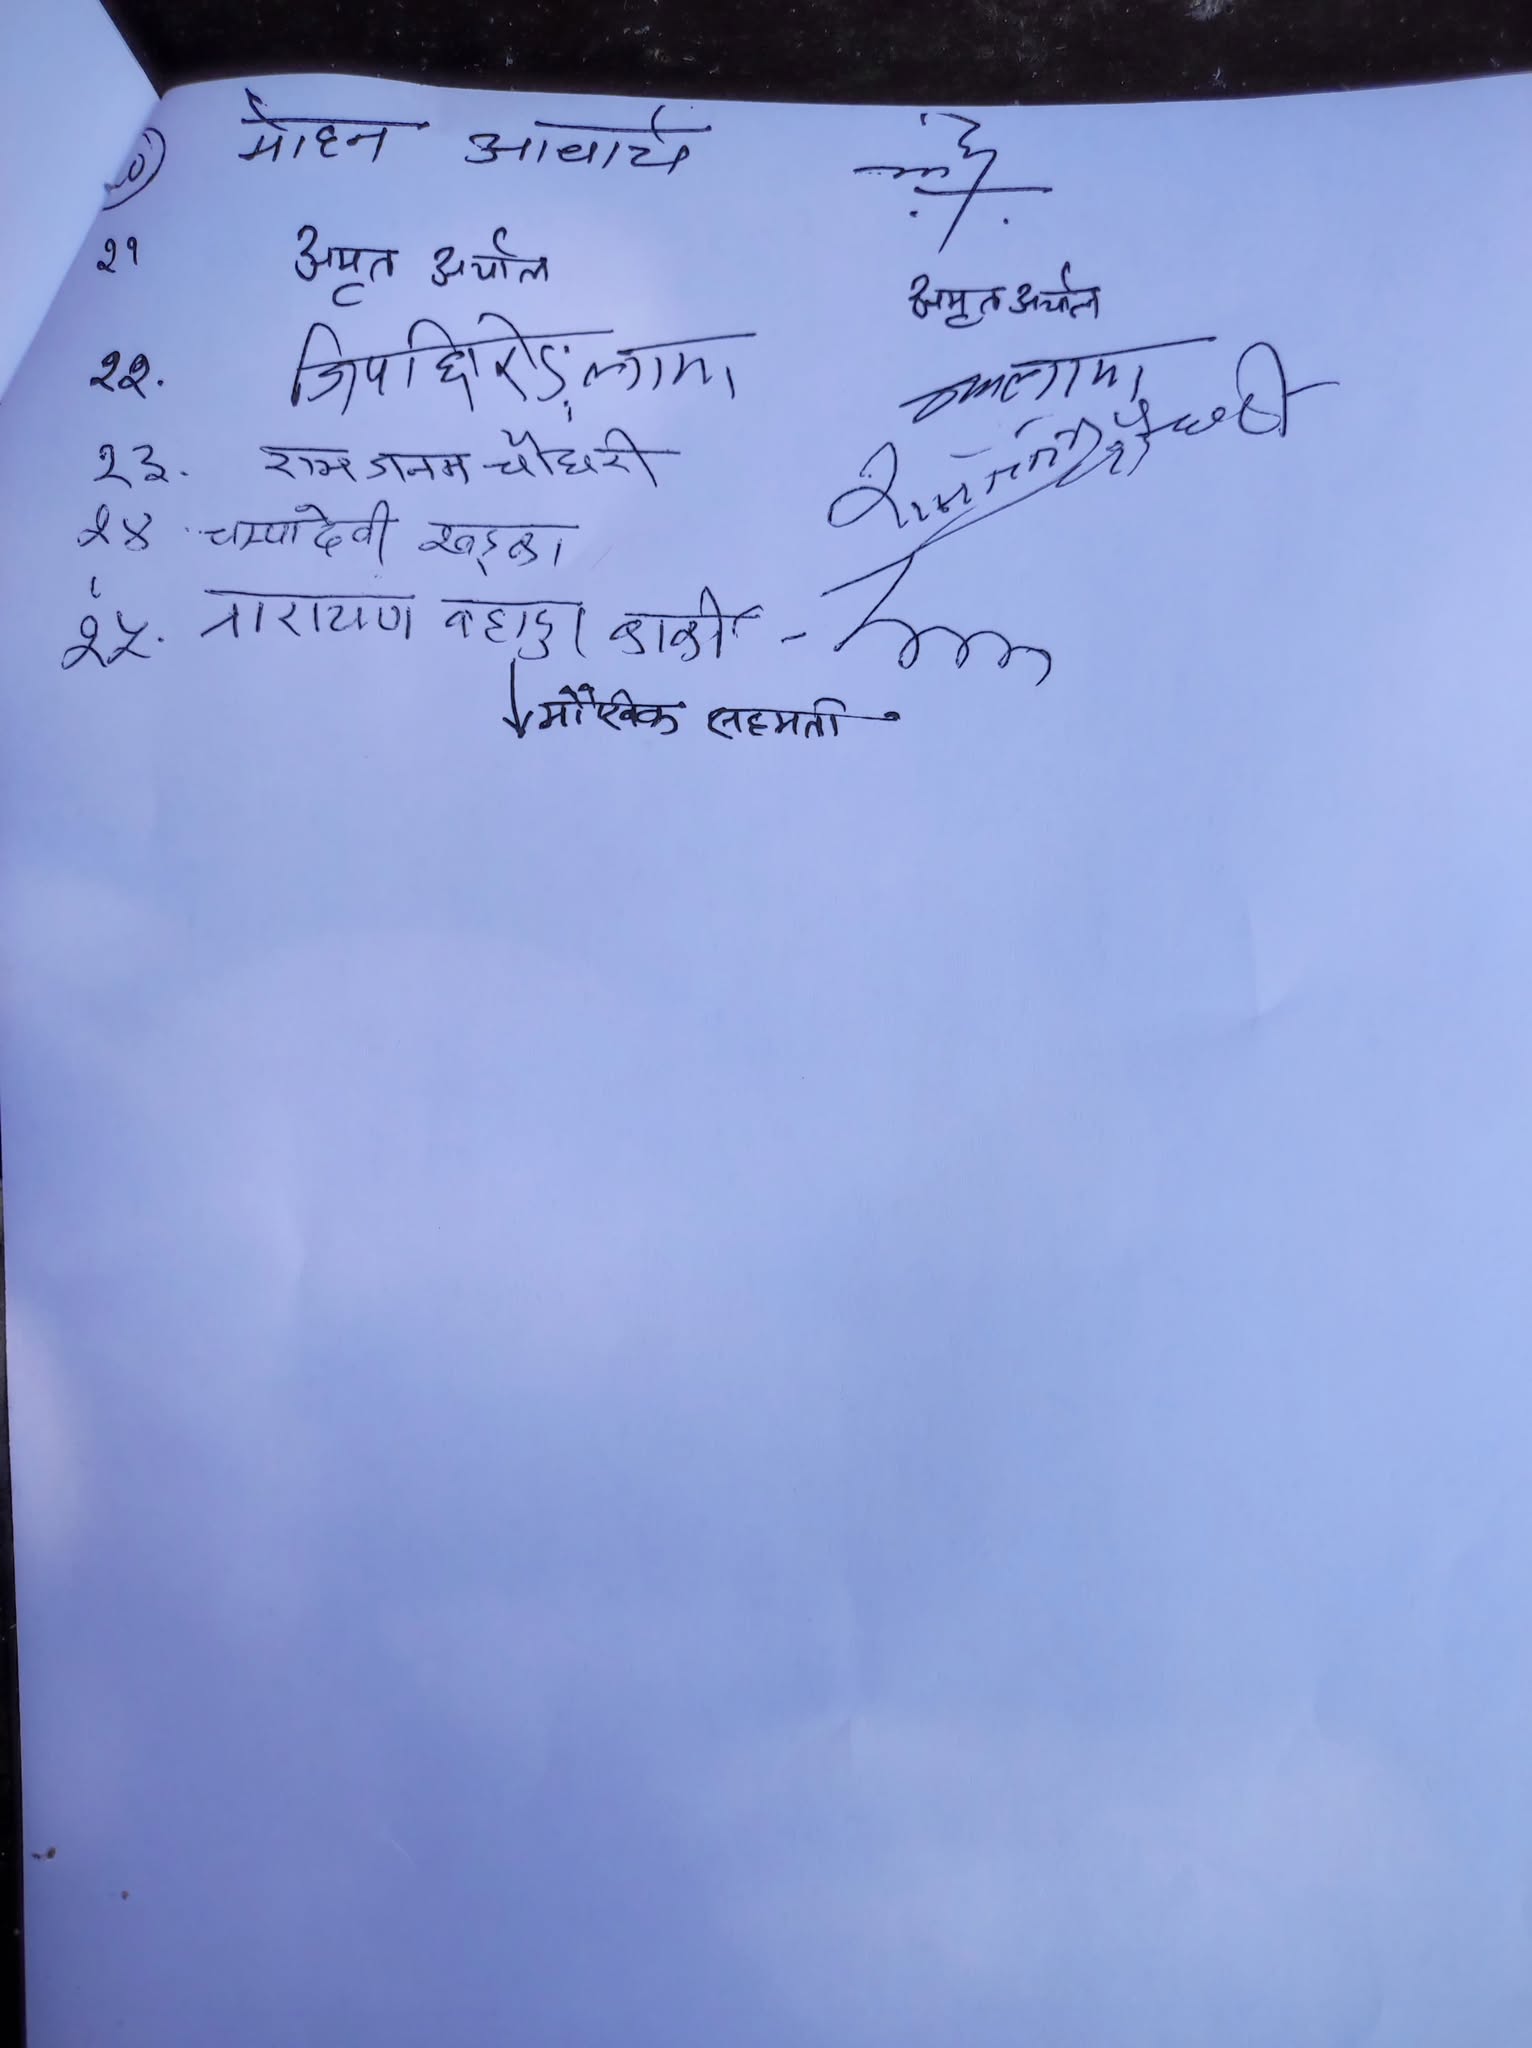 मोहन आचार्य
२१ अमृत अर्याल अमृत अर्याल
२२. लामा
२३. राम जनम चौधरी
२४ चम्पादेवी खड्का
२५. नारायण बहादुर कार्की -
मौखिक सहमती